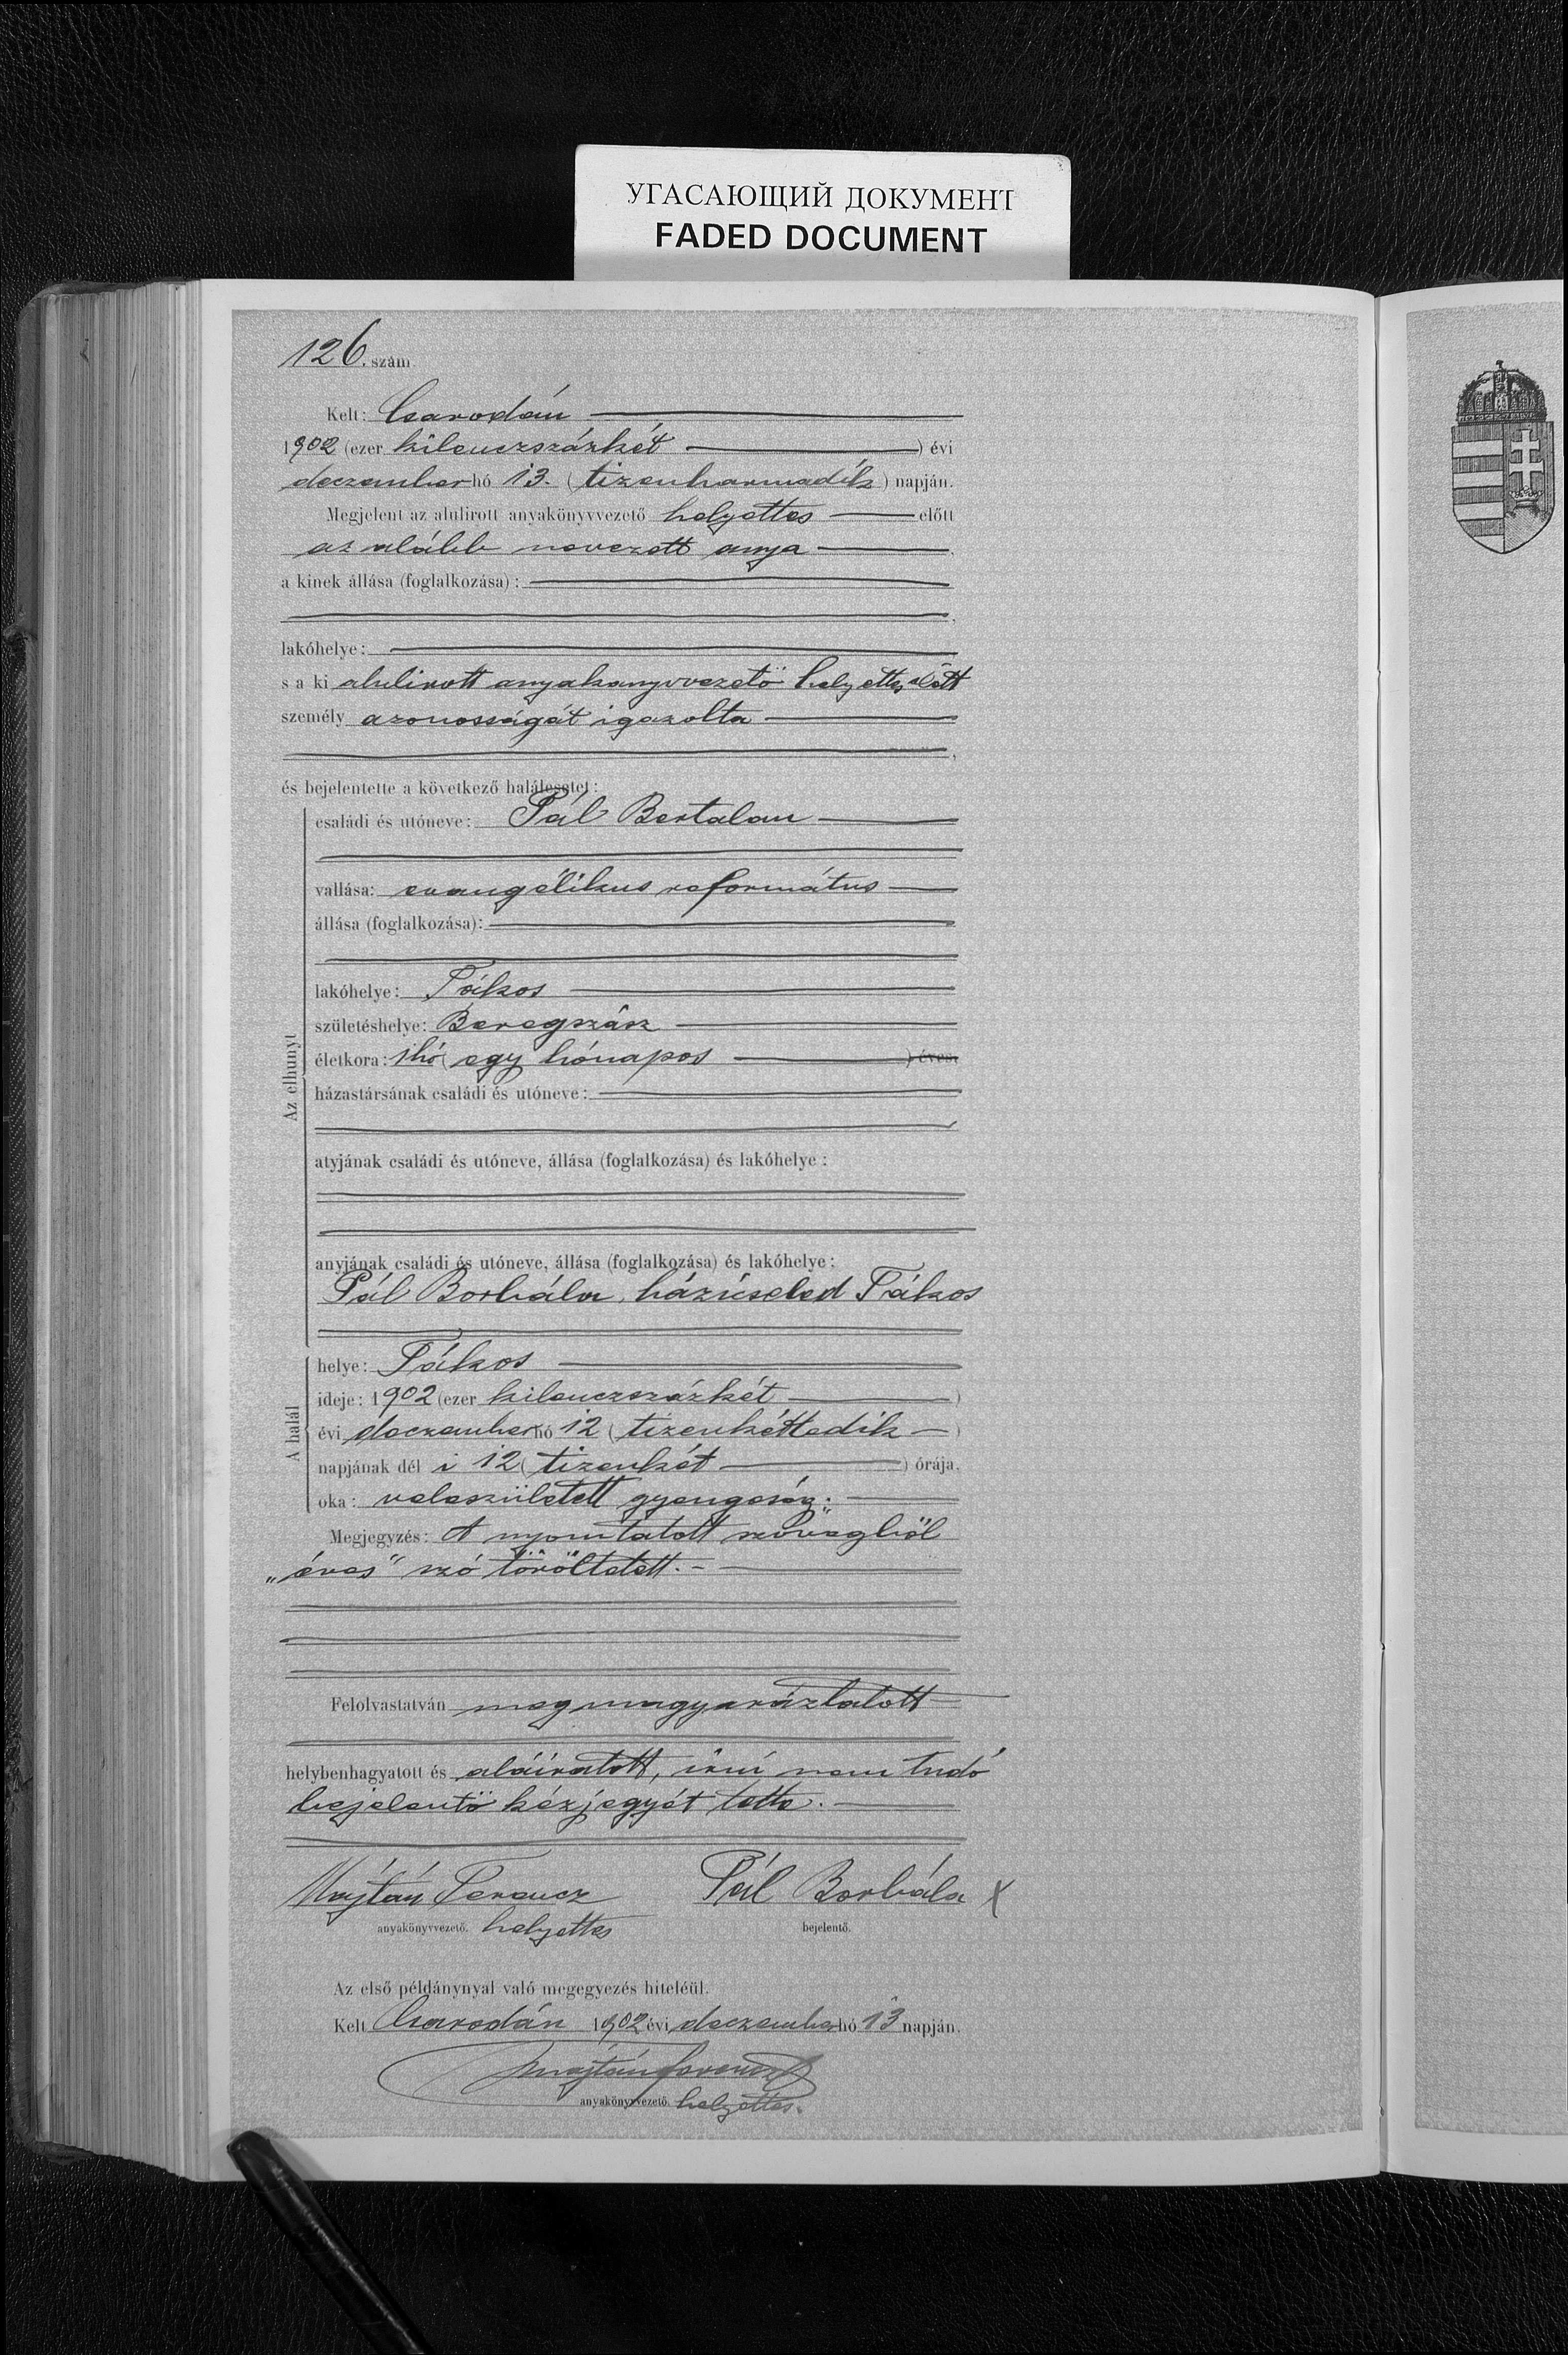 УГАСАЮЩИЙ ДОКУМЕНТ
FADED DOCUMENT
126. szám.
Kelt: Csarodán
1902 (ezer kilenczszázkét ) évi
deczember hó 13. (tizenharmadik) napján.
Megjelent az alulirott anyakönyvvezető helyettes előtt
az alább nevezett anya ,
a kinek állása (foglalkozása):
lakóhelye:
s a ki alulirott anyakönyvvezető helyettes előtt
személy azonosságát igazolta
és bejelentette a következő halálesetet:
Az elhunyt
családi és utóneve: Pál Bertalan
vallása: evangélikus református
állása (foglalkozása):
lakóhelye: Tákos
születéshelye: Beregszász
életkora: 1 hó (egy hónapos ) éves.
házastársának családi és utóneve:
atyjának családi és utóneve, állása (foglalkozása) és lakóhelye:
anyjának családi és utóneve, állása (foglalkozása) és lakóhelye:
Pál Borbála, házicseled Tákos
A halál
helye: Tákos
ideje: 1902 (ezer kilenczszázkét )
évi deczember hó 12 (tizenkettedik )
napjának dél i 12 (tizenkét ) órája.
oka: veleszületett gyengeség.
Megjegyzés: A nyomtatott szövegből
„éves" szó töröltetett.-
Felolvastatván megmagyaráztatott
helybenhagyatott és aláíratott, írni nem tudó
bejelentő kézjegyét tette.
Majtán Ferencz Pál Borbála X
anyakönyvvezető. helyettes bejelentő.
Az első példánynyal való megegyezés hiteléül.
Kelt Csarodán 1902 évi deczember hó 13 napján.
Majtán Ferencz
anyakönyvvezető. helyettes.